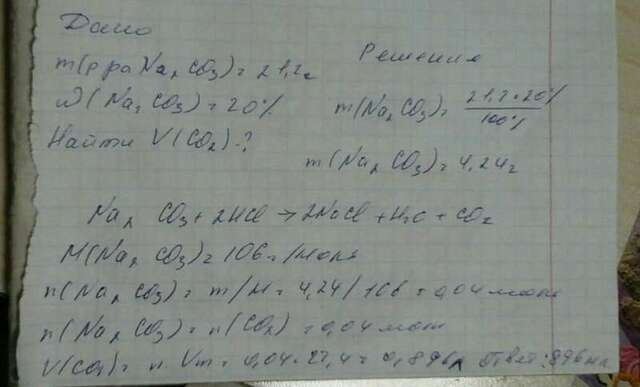 Дано
Решение
m(р-ра Na2CO3) = 21,2г
ω(Na2CO3) = 20%
m(Na2CO3) = 21,2·20% / 100%
Найти V(CO2)-?
m(Na2CO3) = 4,24г
Na2CO3 + 2HCl → 2NaCl + H2O + CO2
M(Na2CO3) = 106г/моль
n(Na2CO3) = m/M = 4,24/106 = 0,04 моль
n(Na2CO3) = n(CO2) = 0,04 моль
V(CO2) = n·Vm = 0,04·22,4 = 0,896л Ответ: 896мл